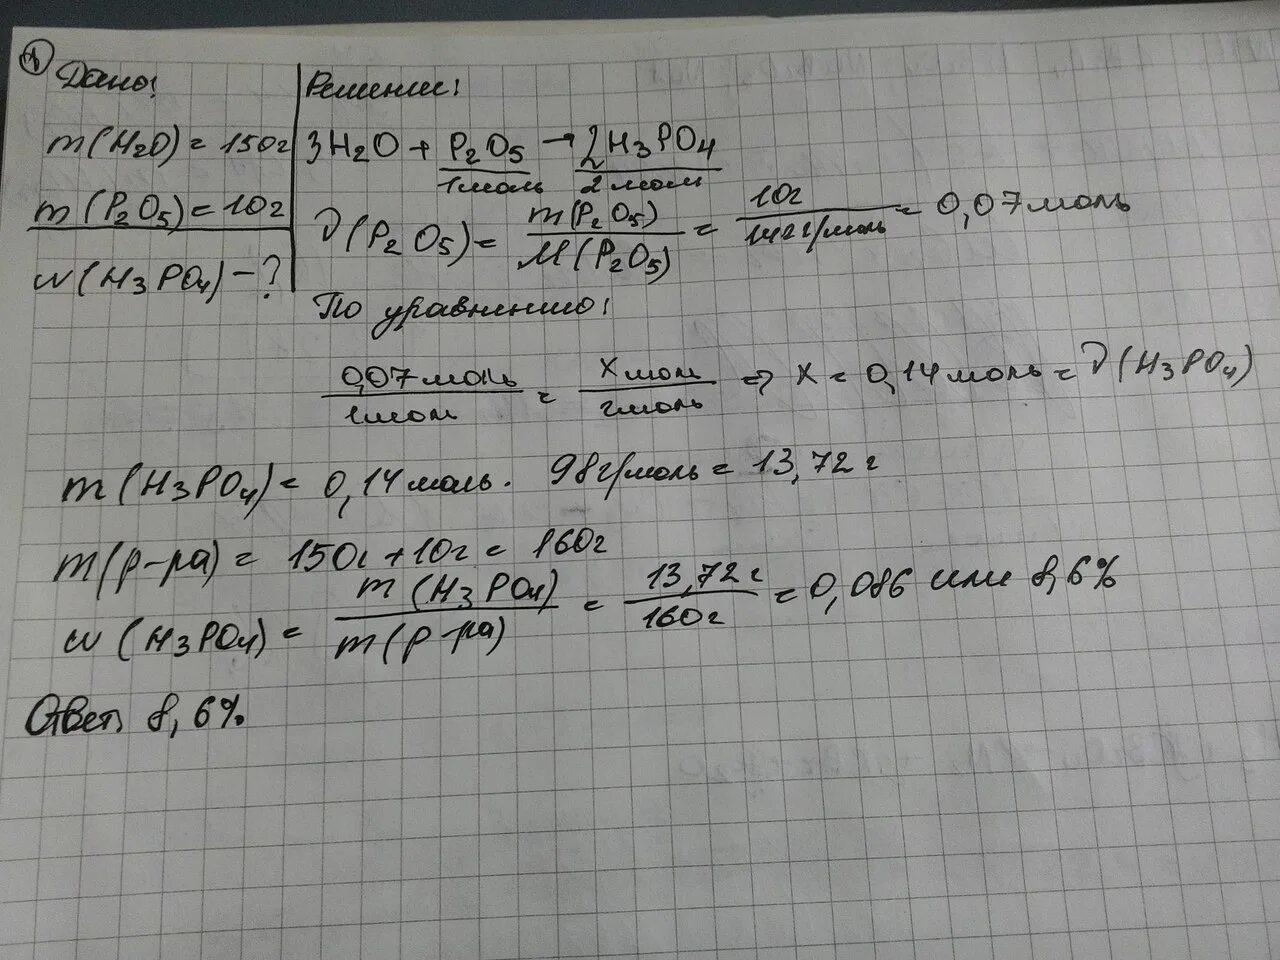 1
Дано:
m(H2O) = 150г
m(P2O5) = 10г
w(H3PO4) - ?
Решение:
3H2O + P2O5 → 2H3PO4
1моль 2моль
ν(P2O5) = m(P2O5) / M(P2O5) = 10г / 142г/моль = 0,07моль
По уравнению:
0,07моль / 1моль = X моль / 2моль => X = 0,14моль = ν(H3PO4)
m(H3PO4) = 0,14моль · 98г/моль = 13,72г
m(р-ра) = 150г + 10г = 160г
w(H3PO4) = m(H3PO4) / m(р-ра) = 13,72г / 160г = 0,086 или 8,6%
Ответ: 8,6%